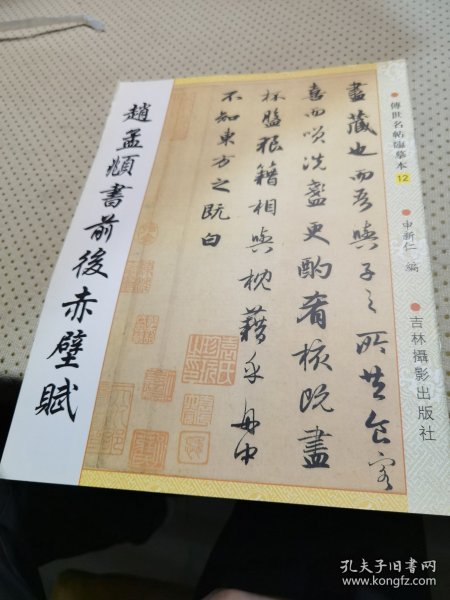 趙孟頫書前後赤壁賦
盡藏也而吾與子之所共食客
喜而咲洗盞更酌肴核既盡
杯盤狼籍相與枕藉乎舟中
不知東方之既白
傳世名帖臨摹本 12
申新仁 編
吉林攝影出版社
孔夫子旧书网
www.kongfz.com